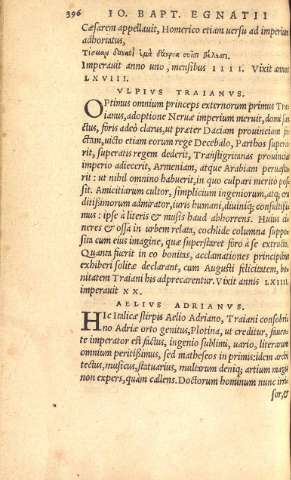 396 IO. BAPT. EGNATII
Cæsarem appellauit, Homerico etiam uersu ad imperium
adhortatus,
Imperauit anno uno, mensibus IIII. Vixit annis
LXVIII.
VLPIVS TRAIANVS.
OPtimus omnium princeps externorum primus Tra
ianus, adoptione Neruæ imperium meruit, domi san
ctus, foris adeò clarus, ut præter Daciam prouinciam fa
ctam, uicto etiam eorum rege Decebalo, Parthos supera
rit, superatis regem dederit, Transtigritanas prouincias
imperio adiecerit, Armeniam, atque Arabiam peruaga
rit: ut nihil omnino habuerit, in quo culpari merito pos
sit. Amicitiarum cultor, simplicium ingeniorum, atq; eru
ditissimorum admirator, iuris humani, diuiniq; consultissi
mus: ipse à literis & musis haud abhorrens. Huius ci
neres & ossa in urbem relata, cochlide columna suppo
sita cum eius imagine, quæ superstaret foro à se extructo.
Quanta fuerit in eo bonitas, acclamationes principibus
exhiberi solitæ declarant, cum Augusti felicitatem, bo
nitatem Traiani his adprecarentur. Vixit annis LXIIII.
imperauit XX.
AELIVS ADRIANVS.
HIc Italicæ stirpis Aelio Adriano, Traiani consobri
no Adriæ orto genitus, Plotina, ut creditur, fauen
te imperator est factus, ingenio sublimi, uario, literarum
omnium peritissimus, sed matheseos in primis: idem archi
tectus, musicus, statuarius, multarum deniq; artium magis
non expers, quàm callens. Doctorum hominum nunc irri
sor, &